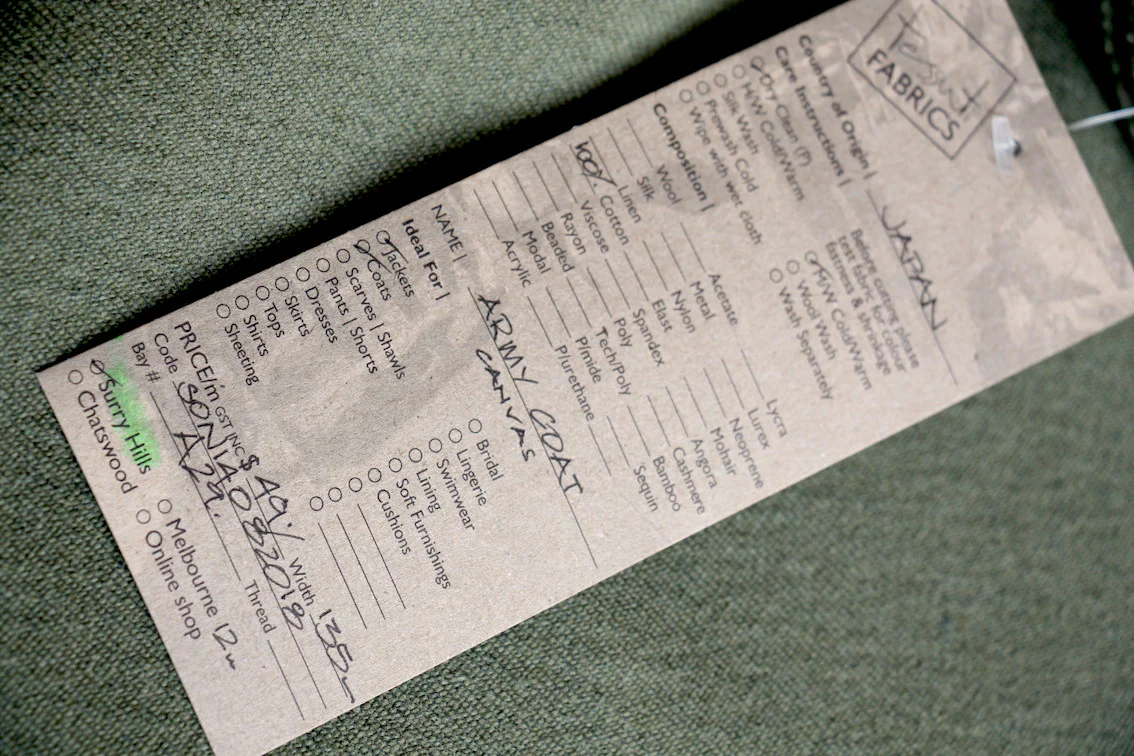 Tessuti
FABRICS
Country of Origin | JAPAN
Care Instructions | Before cutting please
test fabric for colour
fastness & shrinkage
Dry Clean (P)
H/W Cold/Warm
Silk Wash
Prewash Cold
Wipe with wet cloth
H/W Cold/Warm
Wool Wash
Wash Separately
Composition |
Wool
Silk
Linen
100% Cotton
Viscose
Rayon
Beaded
Modal
Acrylic
Acetate
Metal
Nylon
Elast
Spandex
Poly
Tech/Poly
P/mide
P/urethane
Lycra
Lurex
Neoprene
Mohair
Angora
Cashmere
Bamboo
Sequin
NAME | ARMY COAT
CANVAS
Ideal For |
Jackets
Coats
Scarves | Shawls
Pants | Shorts
Dresses
Skirts
Tops
Shirts
Sheeting
Bridal
Lingerie
Swimwear
Lining
Soft Furnishings
Cushions
PRICE/m GST INC $ 49/ Width 135
Code SONIA082018
Bay # A29. Thread
Surry Hills
Chatswood
Melbourne 12m
Online shop